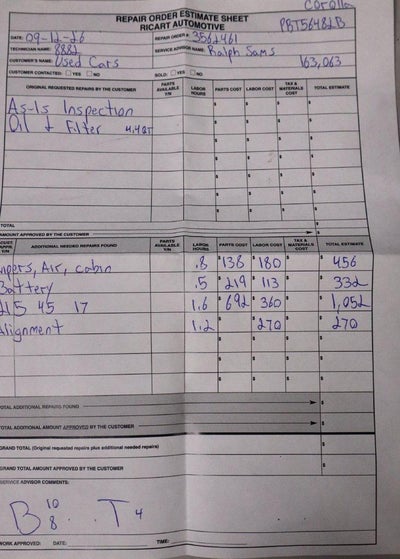 Corolla
REPAIR ORDER ESTIMATE SHEET
RICART AUTOMOTIVE
PBT56482B
DATE: 09-12-26 REPAIR ORDER # 3562461
TECHNICIAN NAME: 8882 SERVICE ADVISOR NAME: Ralph Sams
CUSTOMER'S NAME: Used Cars 163,063
CUSTOMER CONTACTED: YES NO SOLD: YES NO
ORIGINAL REQUESTED REPAIRS BY THE CUSTOMER PARTS AVAILABLE Y/N LABOR HOURS PARTS COST LABOR COST TAX & MATERIALS COST TOTAL ESTIMATE
As-Is Inspection $ $ $ $
Oil & Filter 4.4QT $ $ $ $
$ $ $ $
$ $ $ $
$ $ $ $
$ $ $ $
TOTAL $
AMOUNT APPROVED BY THE CUSTOMER $
CUST. APPR. Y/N ADDITIONAL NEEDED REPAIRS FOUND PARTS AVAILABLE Y/N LABOR HOURS PARTS COST LABOR COST TAX & MATERIALS COST TOTAL ESTIMATE
Wipers, Air, cabin .8 $138 $180 $ $456
Battery .5 $219 $113 $ $332
215 45 17 1.6 $692 $360 $ $1,052
Alignment 1.2 $ $270 $ $270
$ $ $ $
$ $ $ $
TOTAL ADDITIONAL REPAIRS FOUND $
TOTAL ADDITIONAL AMOUNT APPROVED BY THE CUSTOMER $
GRAND TOTAL (Original requested repairs plus additional needed repairs) $
GRAND TOTAL AMOUNT APPROVED BY THE CUSTOMER $
SERVICE ADVISOR COMMENTS:
B 10 8 . T 4
WORK APPROVED: DATE: TIME: